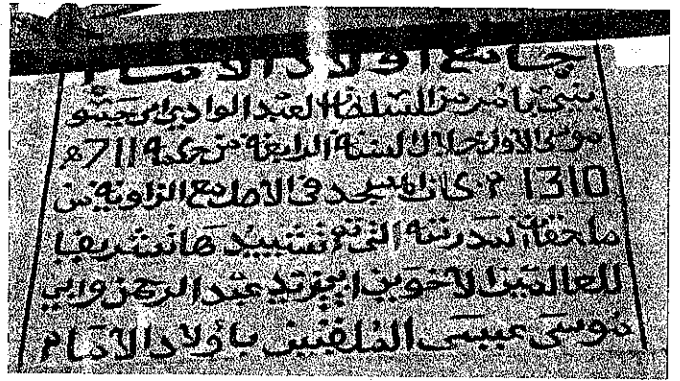 جامع اولاد الامام
بني بأمر من السلطان العبد الوادي ابي حمو
موسى الاول خلال السنة الرابعة من حكمه 711ه
1310 م كان المسجد في الاصل مع الزاوية من
ملحقات المدرسة التي تم تشييدها تشريفا
للعالمين الاخوين ابي زيد عبد الرحمن وابي
موسى عيسى الملقبين بأولاد الامام